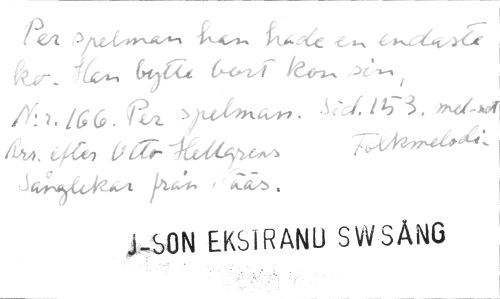 Per spelman han hade en endaste
ko. Han bytte bort kon sin,
N:r. 166. Per spelman. Sid. 153. mel-not
Arr. efter Otto Hellgrens Folkmelodi-
Sånglekar från Nääs.
J-SON EKSTRAND SWSÅNG